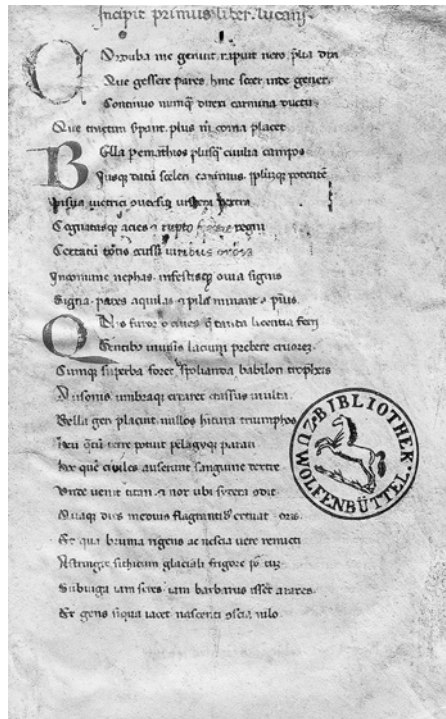 Incipit primus liber lucani
Corduba me genuit rapuit nero, plia dixi
Que gessere pares, hinc socer inde gener.
Continuo numq̃ direxi carmina ductu
Que tractim serpant. plus m̃ coma placet
Bella per emathios plusq̃ civilia campos
Iusq; datũ sceleri canimus. pplũq; potentẽ
In sua victrici
Cognatasq; acies ⁊ rupto federe regni
Certatũ totis viribus orbis
In comune nephas. infestisq; obvia signis
Signa. pares aquilas ⁊ pila minantia pilis.
Quis furor o cives q̃ tanta licentia ferri
Gentibus invisis lacium prebere cruorem.
Cumq; superba foret spolianda babilon tropheis
Ausoniis umbraq; erraret crassus inulta.
Bella geri placuit nullos hitura triumphos
Heu q̃tũ terre potuit pelagiq; parari
Hoc quẽ civiles auserunt sanguine dextre
Unde venit titan ⁊ nox ubi sydera condit
Quaq; dies medius flagrantibus estuat oris.
Et qua bruma rigens ac nescia vere remitti
Astringit sithicum glaciali frigore
Sub iuga iam seres. iam barbarus isset araxes.
Et gens siqua iacet nascenti ɔscia nilo
BIBLIOTHEK ZU WOLFENBÜTTEL.